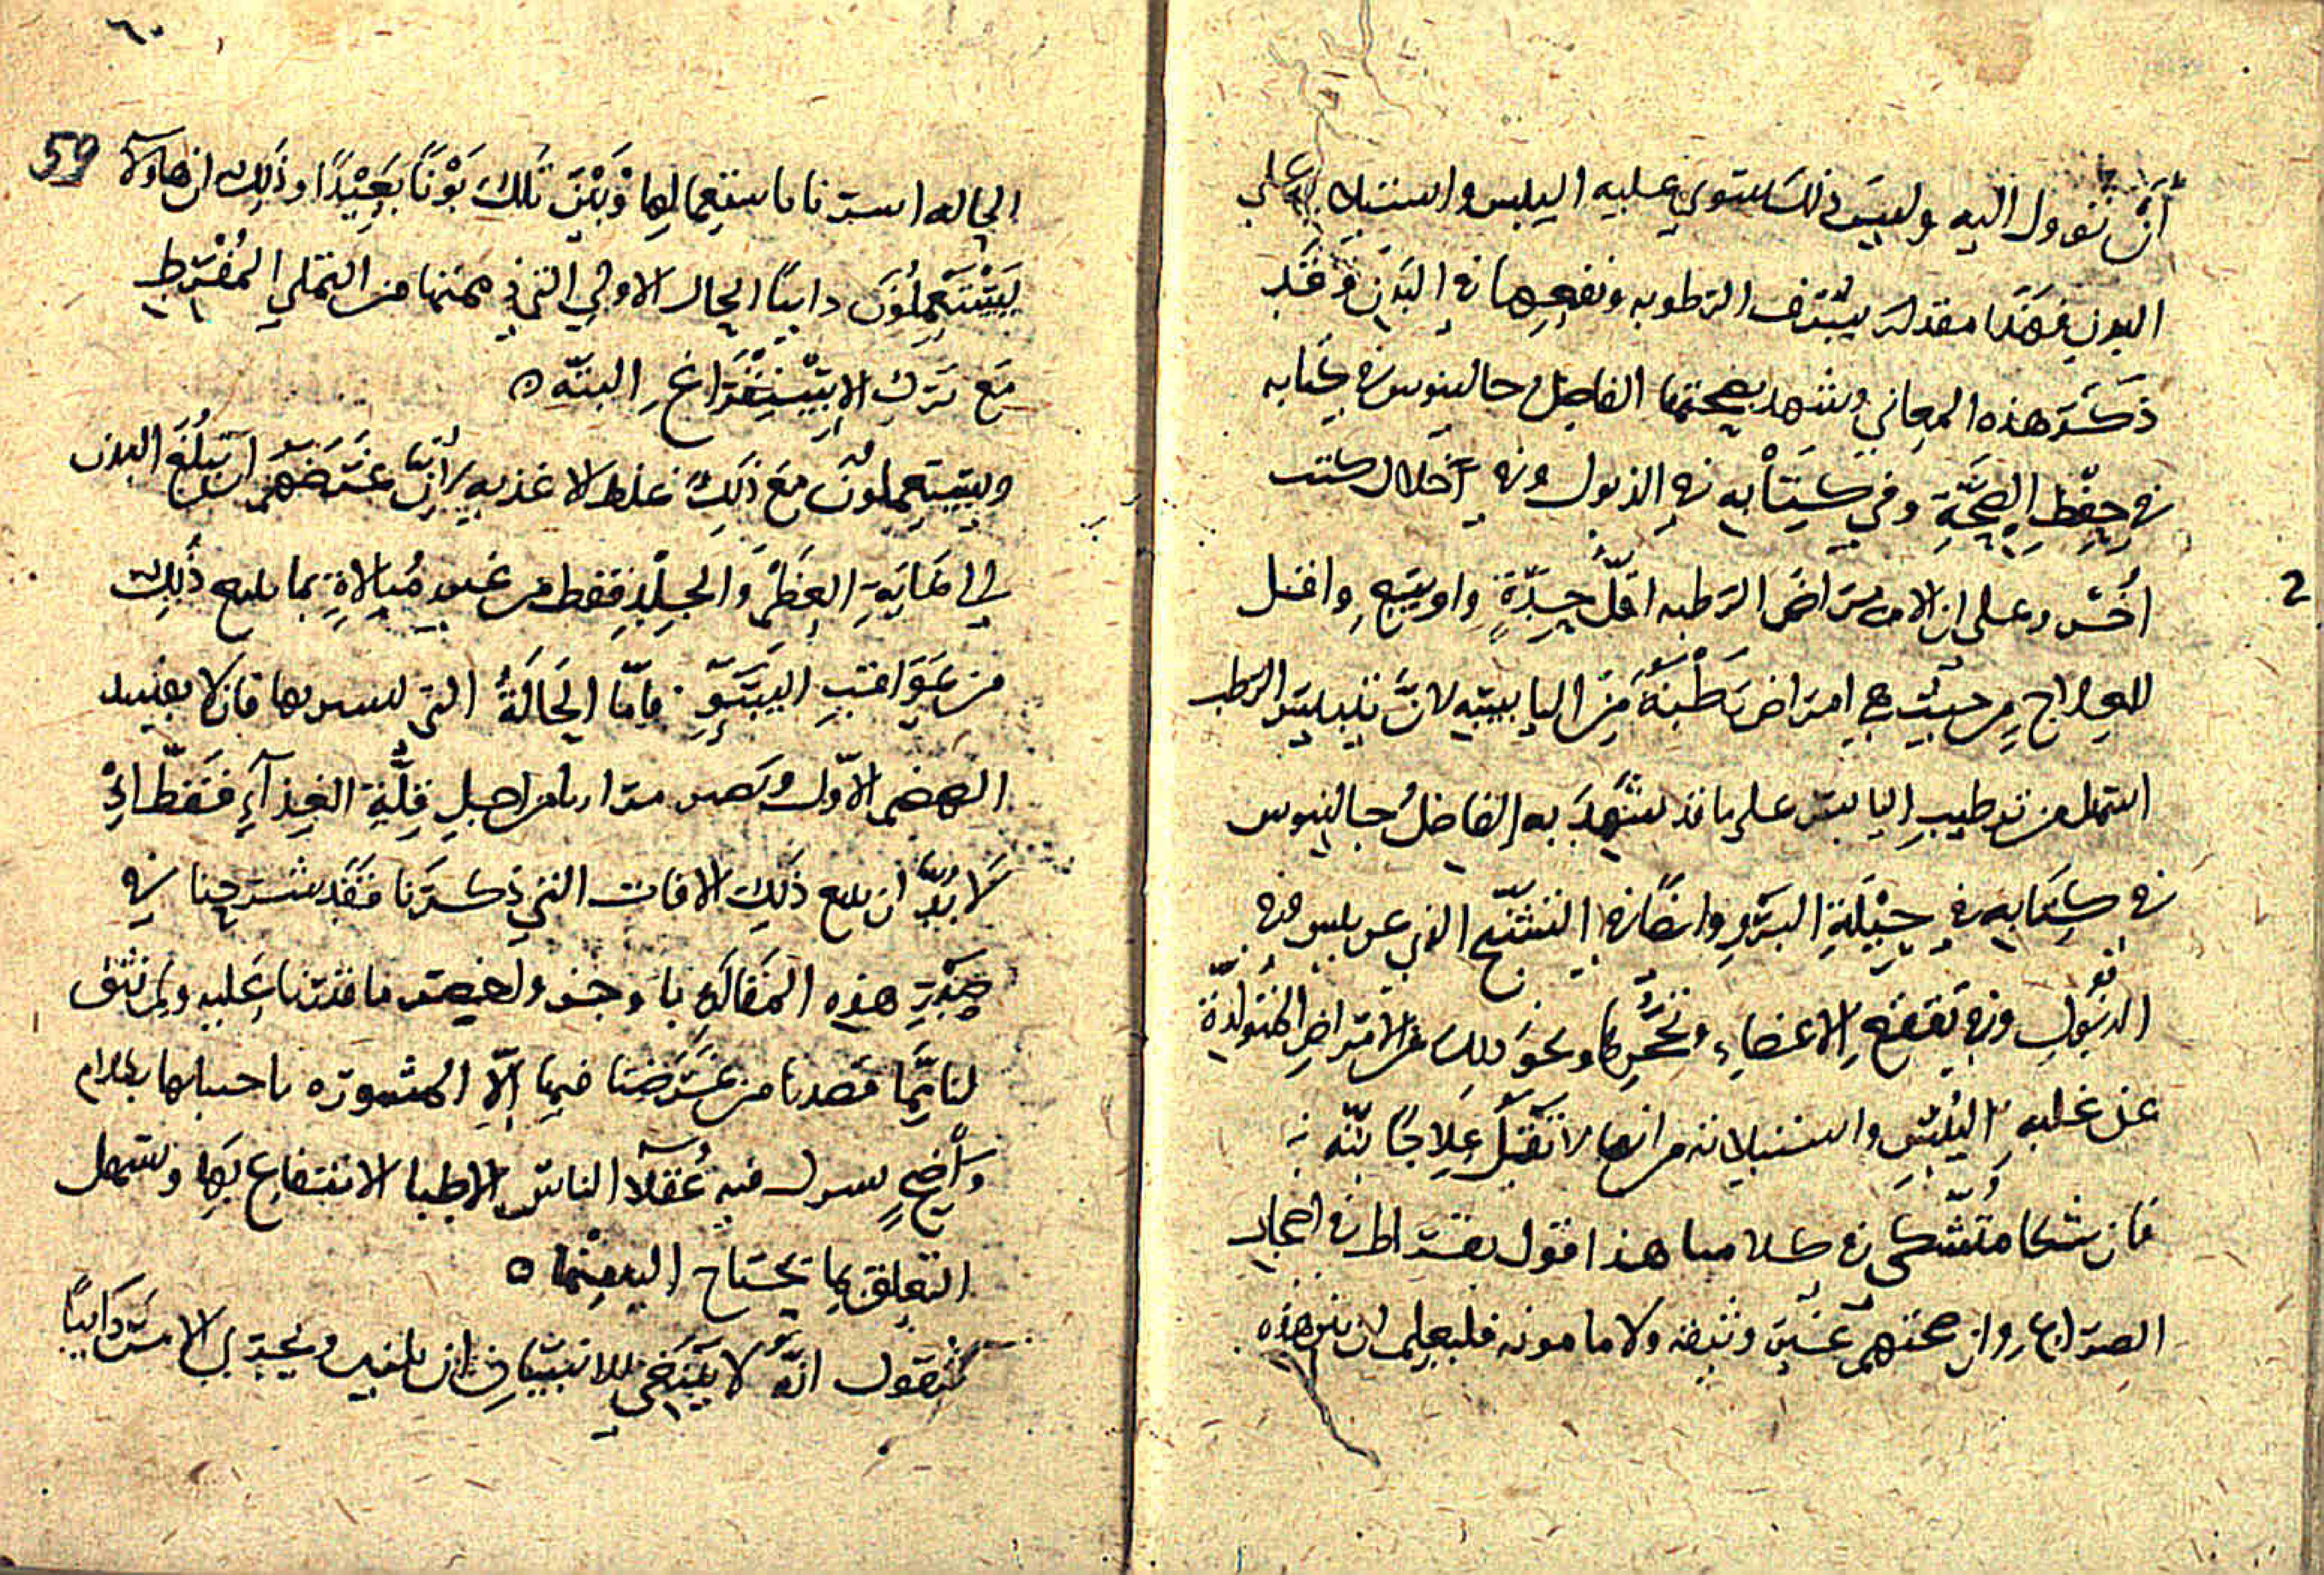 أن تؤول اليه وليس ذلك يستوي عليه اليبس واستيلايه على
البدن فهذا مقدار شرف الرطوبه ونفعها في البدن وقد
ذكر هذه المعاني وشهد بصحتها الفاضل جالينوس في كتابه
في حفظ الصحة وفي كتابه في الذبول وفي خلال كتب
أخر وعلى ان الامراض الرطبه اقل حدة واقبل
للعلاج من حيث هي امراض رطبة من اليابسه لان تيبيس الرطب
اسهل من ترطيب اليابس على ما قد شهد به الفاضل جالينوس
في كتابه في حيلة البرو وايضا في التشنج الذي عن يبس وفي
الذبول وفي تقفع الاعضاء ونحو ذلك من الامراض المتولدة
عن غلبه اليبس واستيلايه من انها لا تقبل علاجا بته
فان شكا متشكى في كلامنا هذا فقول بقراط في اصحاب
الصراع وان صحتهم غير وثيقه ولا مامونه فليعلم ان بين هذه
٦٠
59
الحاله اشرنا باستعمالها وبين تلك بونا بعيدا وذلك ان هاولا
يستعملون دايما الحال الاولي التي في صحتها من التملي المفرط
مع ترك الاستفراغ البته ه
ويستعملون مع ذلك غلظ الاغذيه لان غرضهم ان يبلغ البدن
الى غاية العظم والجلد فقط من غير مبالاة بما يتبع ذلك
من عواقب السو فاما الحالة التي نشير بها فان لا يفسد
الهضم الاول ويصير مرارا من اجل قلة الغذآء فقط اذ
لا بد ان يتبع ذلك الافات التي ذكرنا فقد شرحنا في
صدر هذه المقاله باوجز ولخص ما قدرنا عليه ولم نثق
لنا بما قصدنا من غرضنا فيها الا المشوره باحسابها بكلام
واضح يشرك فيه عقلآ الناس الاطبا الانتفاع بها ويسهل
التعلق بما يحتاج اليه منها ه
فنقول انه لا ينبغي للانسان ان يلتمس ويجتري الامر دايما